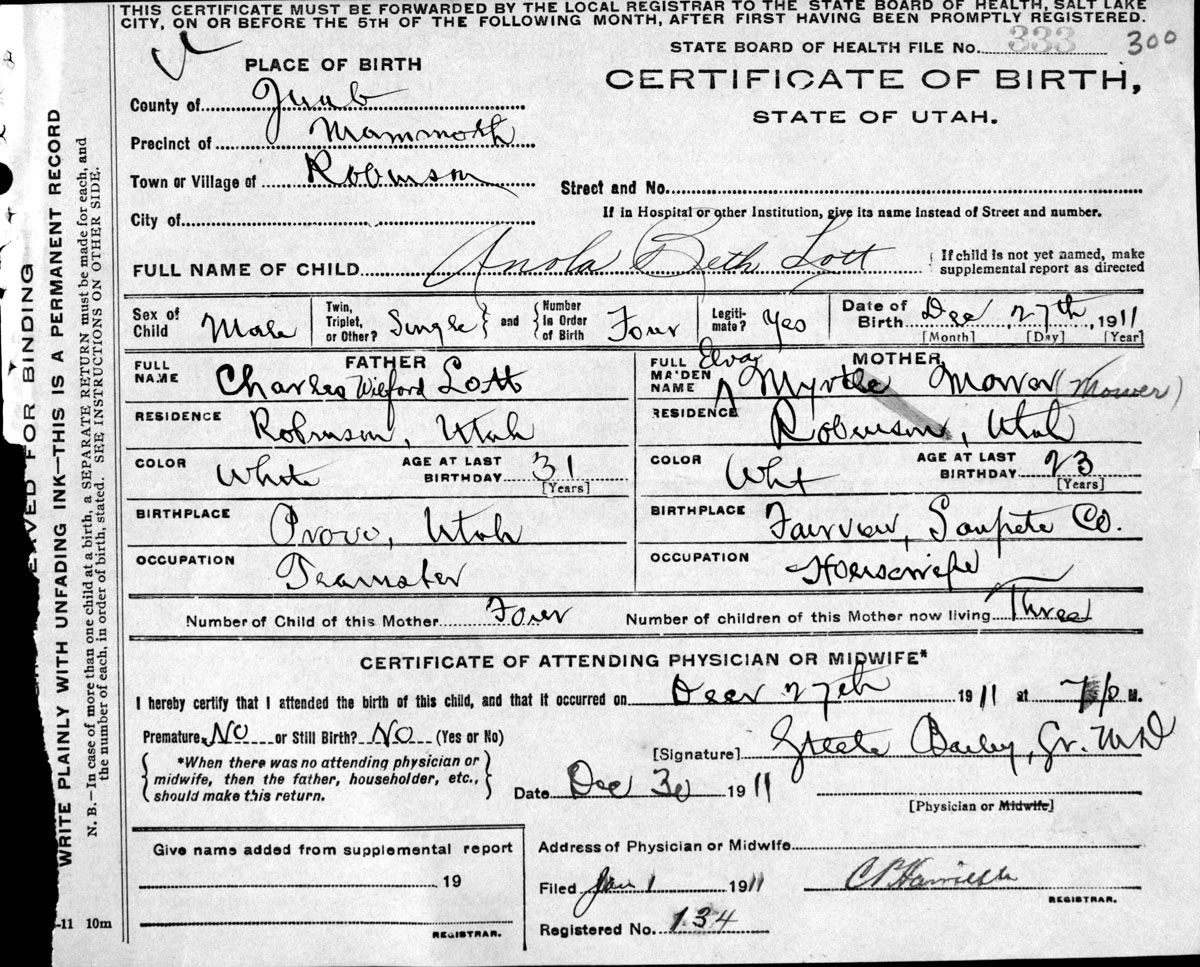 THIS CERTIFICATE MUST BE FORWARDED BY THE LOCAL REGISTRAR TO THE STATE BOARD OF HEALTH, SALT LAKE
CITY, ON OR BEFORE THE 5TH OF THE FOLLOWING MONTH, AFTER FIRST HAVING BEEN PROMPTLY REGISTERED.
STATE BOARD OF HEALTH FILE No. 333 300
PLACE OF BIRTH
CERTIFICATE OF BIRTH,
STATE OF UTAH.
County of Juab
Precinct of Mammoth
Town or Village of Robinson
Street and No.
City of
If in Hospital or other Institution, give its name instead of Street and number.
FULL NAME OF CHILD Anola Beth Lott { If child is not yet named, make supplemental report as directed
Sex of Child Male Twin, Triplet, or Other? Single } and { Number in Order of Birth Four Legiti-mate? Yes Date of Birth Dec 27th, 1911
[Month] [Day] [Year]
FATHER
FULL NAME Charles Wilford Lott
RESIDENCE Robinson, Utah
COLOR White AGE AT LAST BIRTHDAY 31
[Years]
BIRTHPLACE Provo, Utah
OCCUPATION Teamster
MOTHER
FULL MAIDEN NAME Elva Myrtle Mower (Mower)
RESIDENCE Robinson, Utah
COLOR Wht AGE AT LAST BIRTHDAY 23
[Years]
BIRTHPLACE Fairview, Sanpete Co.
OCCUPATION Housewife
Number of Child of this Mother Four Number of children of this Mother now living Three
CERTIFICATE OF ATTENDING PHYSICIAN OR MIDWIFE*
I hereby certify that I attended the birth of this child, and that it occurred on Decr 27th 1911 at 7 P M.
Premature, No or Still Birth? No (Yes or No)
[Signature] Steele Bailey, Jr. MD
{ *When there was no attending physician or
midwife, then the father, householder, etc.,
should make this return. }
Date Dec 30 1911
[Physician or Midwife]
Give name added from supplemental report
19
REGISTRAR.
Address of Physician or Midwife
Filed Jan 1 1911
REGISTRAR.
Registered No. 134
-11 10m
FOR BINDING
WRITE PLAINLY WITH UNFADING INK—THIS IS A PERMANENT RECORD
N. B.—In case of more than one child at a birth, a SEPARATE RETURN must be made for each, and
the number of each, in order of birth, stated. SEE INSTRUCTIONS ON OTHER SIDE.